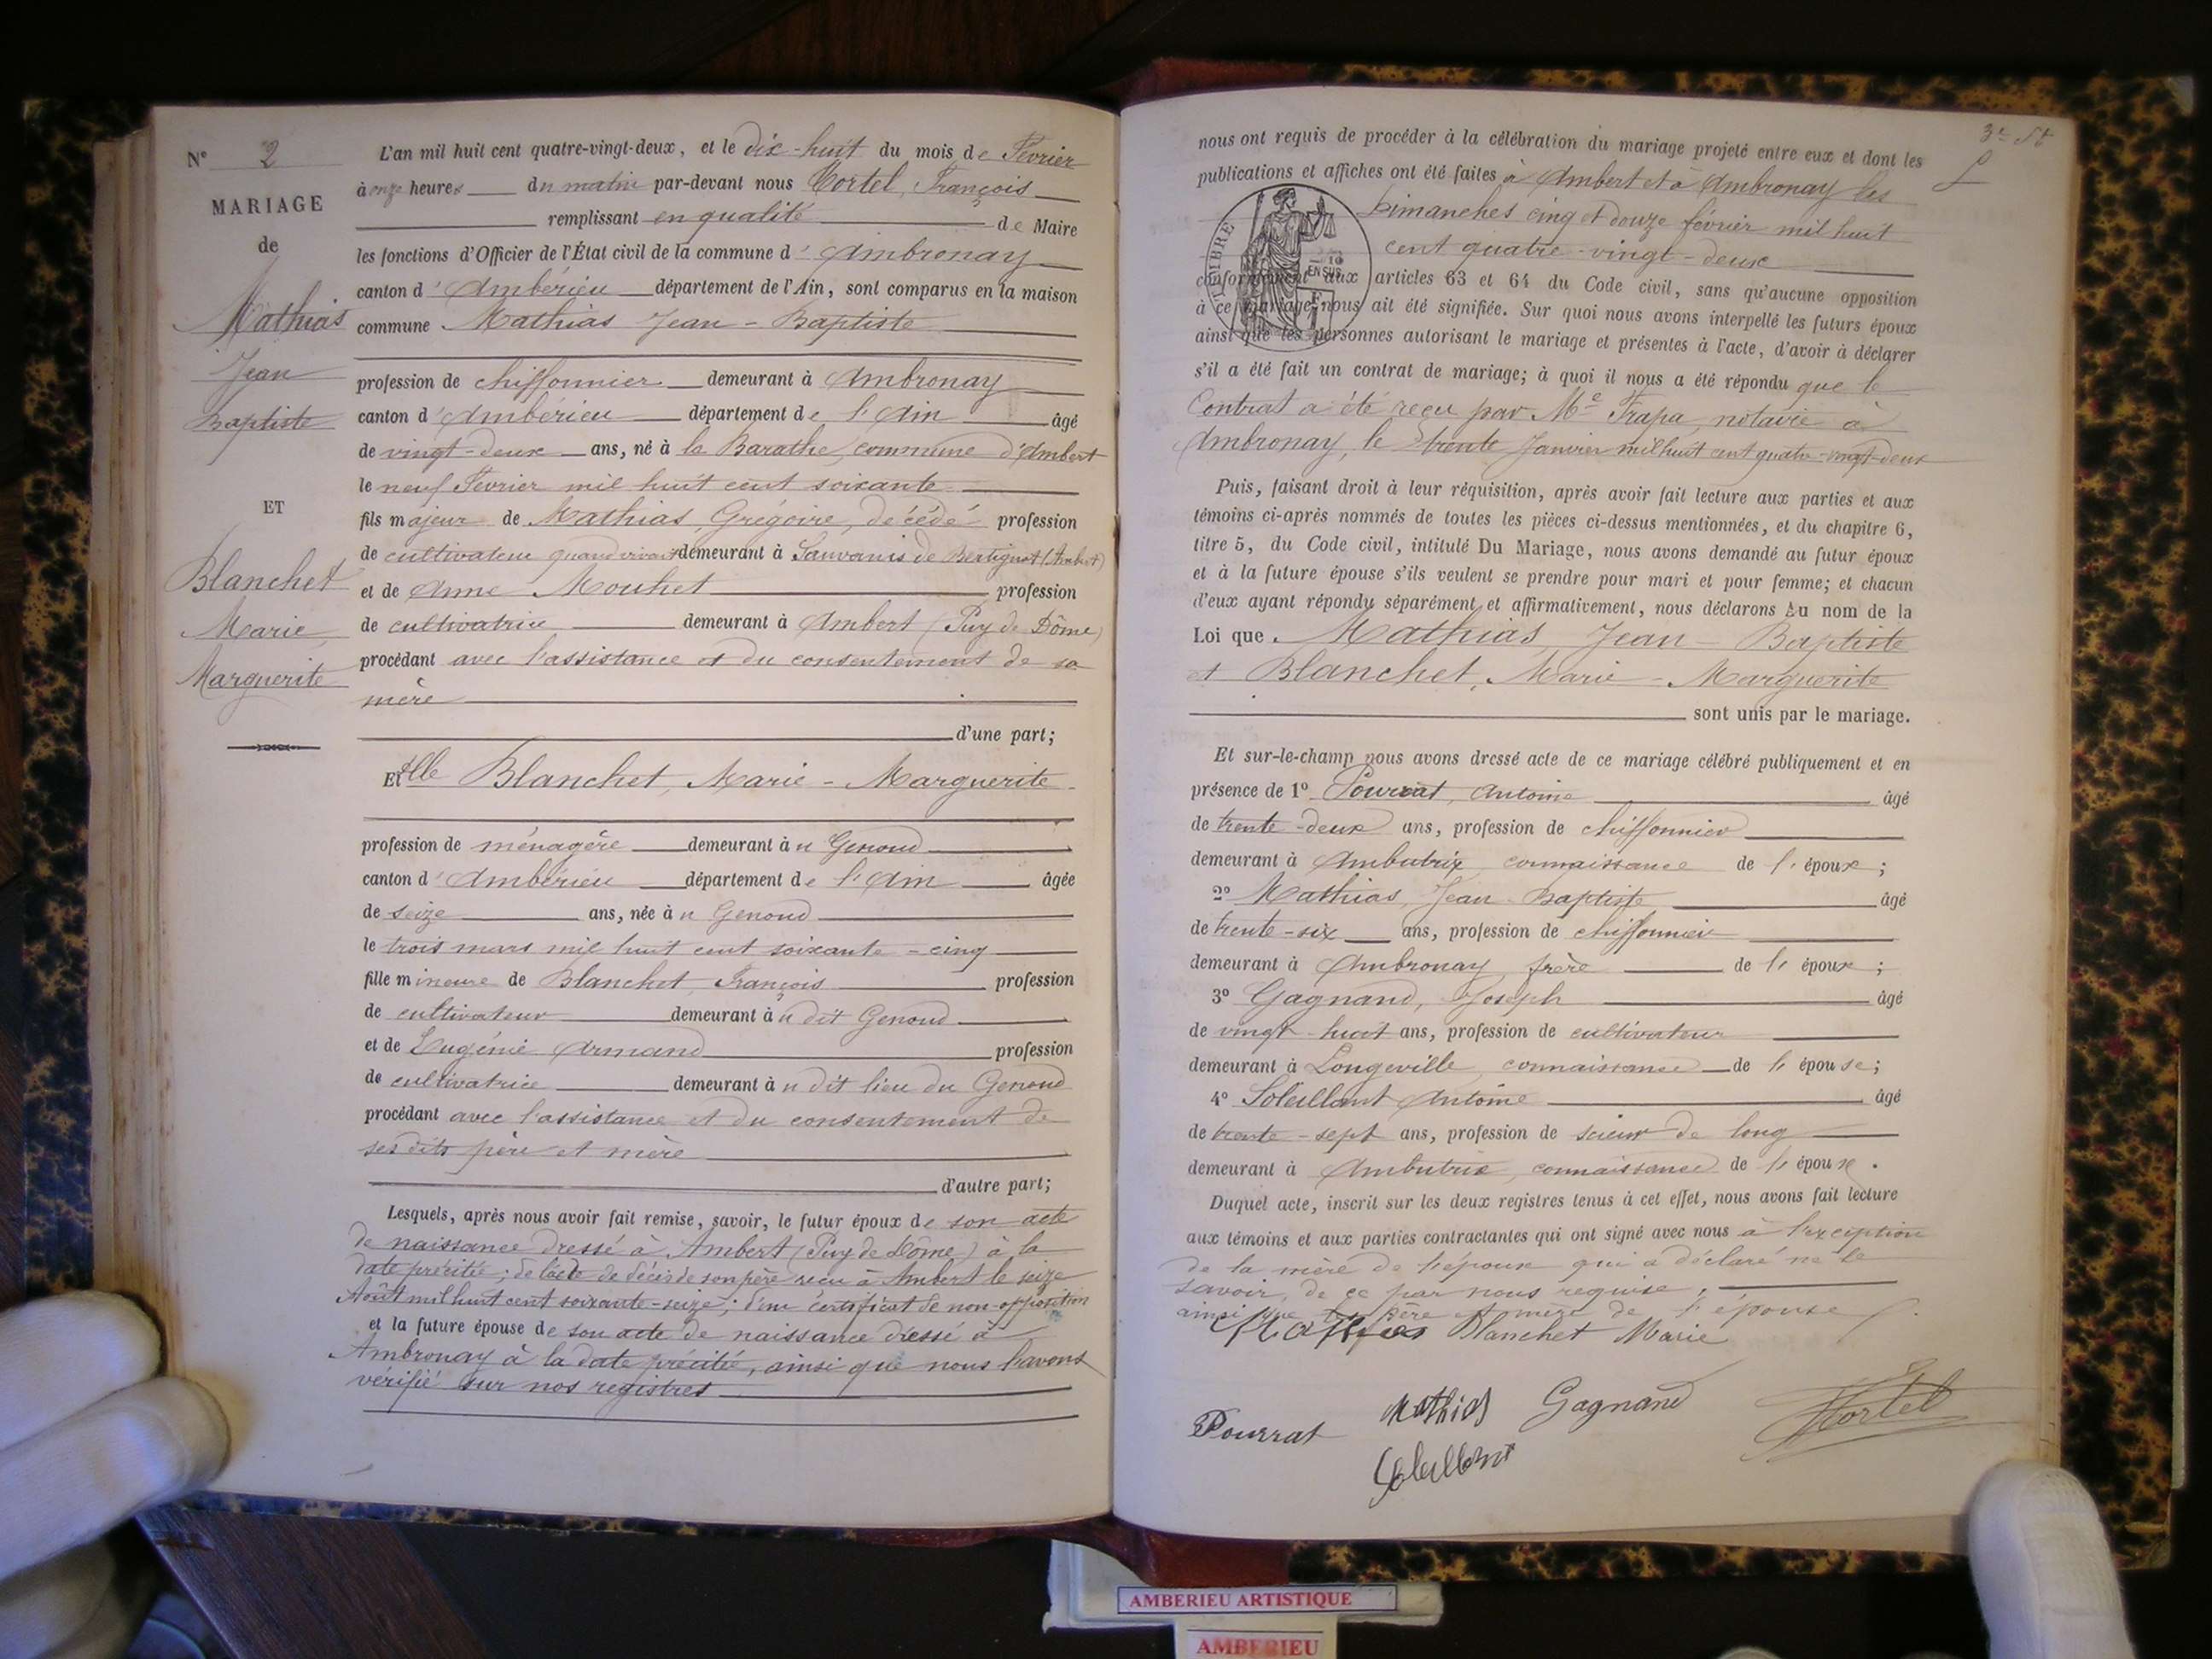 N° 2
MARIAGE
de
Mathias
Jean
Baptiste
ET
Blanchet
Marie
Marguerite
L'an mil huit cent quatre-vingt-deux, et le dix-huit du mois de Février
à onze heures du matin par-devant nous Hortel, François
remplissant en qualité de Maire
les fonctions d'Officier de l'État civil de la commune d'Ambronay
canton d'Ambérieu département de l'Ain, sont comparus en la maison
commune Mathias Jean-Baptiste
profession de chiffonnier demeurant à Ambronay
canton d'Ambérieu département de l'Ain âgé
de vingt-deux ans, né à la Barathe, commune d'Ambert
le neuf Février mil huit cent soixante
fils majeur de Mathias, Grégoire, décédé profession
de cultivateur quand vivant demeurant à de Bertignat (Ambert)
et de Anne Mouhet profession
de cultivatrice demeurant à Ambert (Puy de Dôme)
procédant avec l'assistance et du consentement de sa
mère
d'une part;
Et Dlle Blanchet, Marie-Marguerite
profession de ménagère demeurant à u Genoud
canton d'Ambérieu département de l'Ain âgée
de seize ans, née à u Genoud
le trois mars mil huit cent soixante-cinq
fille mineure de Blanchet, François profession
de cultivateur demeurant à u dit Genoud
et de Eugénie Armand profession
de cultivatrice demeurant à u dit lieu du Genoud
procédant avec l'assistance et du consentement de
ses dits père et mère
d'autre part;
Lesquels, après nous avoir fait remise, savoir, le futur époux de son acte
de naissance dressé à Ambert (Puy de Dôme) à la
date précitée; de l'acte de décès de son père reçu à Ambert le seize
Août mil huit cent soixante-seize; d'un certificat de non-opposition
et la future épouse de son acte de naissance dressé à
Ambronay à la date précitée, ainsi que nous l'avons
vérifié sur nos registres
nous ont requis de procéder à la célébration du mariage projeté entre eux et dont les
publications et affiches ont été faites à Ambert et à Ambronay les
Dimanches cinq et douze février mil huit
cent quatre-vingt-deux
TIMBRE
EN SUS
conformément aux articles 63 et 64 du Code civil, sans qu'aucune opposition
à ce mariage nous ait été signifiée. Sur quoi nous avons interpellé les futurs époux
ainsi que les personnes autorisant le mariage et présentes à l'acte, d'avoir à déclarer
s'il a été fait un contrat de mariage; à quoi il nous a été répondu que le
Contrat a été reçu par Me Trapa, notaire à
Ambronay, le trente Janvier mil huit cent quatre-vingt-deux
Puis, faisant droit à leur réquisition, après avoir fait lecture aux parties et aux
témoins ci-après nommés de toutes les pièces ci-dessus mentionnées, et du chapitre 6,
titre 5, du Code civil, intitulé Du Mariage, nous avons demandé au futur époux
et à la future épouse s'ils veulent se prendre pour mari et pour femme; et chacun
d'eux ayant répondu séparément et affirmativement, nous déclarons Au nom de la
Loi que Mathias, Jean-Baptiste
et Blanchet, Marie-Marguerite
sont unis par le mariage.
Et sur-le-champ nous avons dressé acte de ce mariage célébré publiquement et en
présence de 1° Pourrat, Antoine âgé
de trente-deux ans, profession de chiffonnier
demeurant à Ambutrix connaissance de l'époux;
2° Mathias, Jean-Baptiste âgé
de trente-six ans, profession de chiffonnier
demeurant à Ambronay, frère de l'époux;
3° Gagnand, Joseph âgé
de vingt-huit ans, profession de cultivateur
demeurant à Longeville, connaissance de l'épouse;
4° Soleillant Antoine âgé
de trente-sept ans, profession de scieur de long
demeurant à Ambutrix, connaissance de l'époux.
Duquel acte, inscrit sur les deux registres tenus à cet effet, nous avons fait lecture
aux témoins et aux parties contractantes qui ont signé avec nous à l'exception
de la mère de l'époux qui a déclaré ne le
savoir, de ce par nous requise,
ainsi que père et mère de l'épouse
Mathias Blanchet Marie
Mathias Gagnand Hortel
Pourrat
Soleillant
AMBERIEU ARTISTIQUE
AMBERIEU